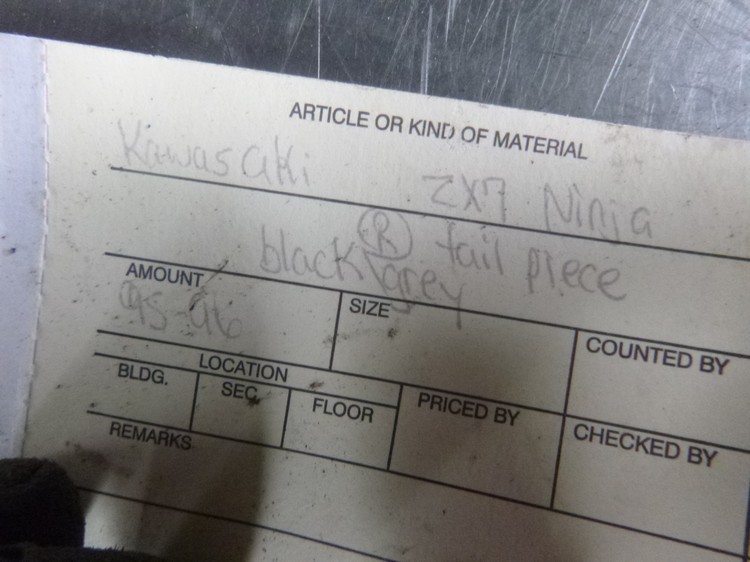 ARTICLE OR KIND OF MATERIAL
Kawasaki ZX7 Ninja
Ⓡ tail piece
black\grey
AMOUNT
95-96
SIZE
COUNTED BY
LOCATION
BLDG. SEC. FLOOR
PRICED BY
CHECKED BY
REMARKS